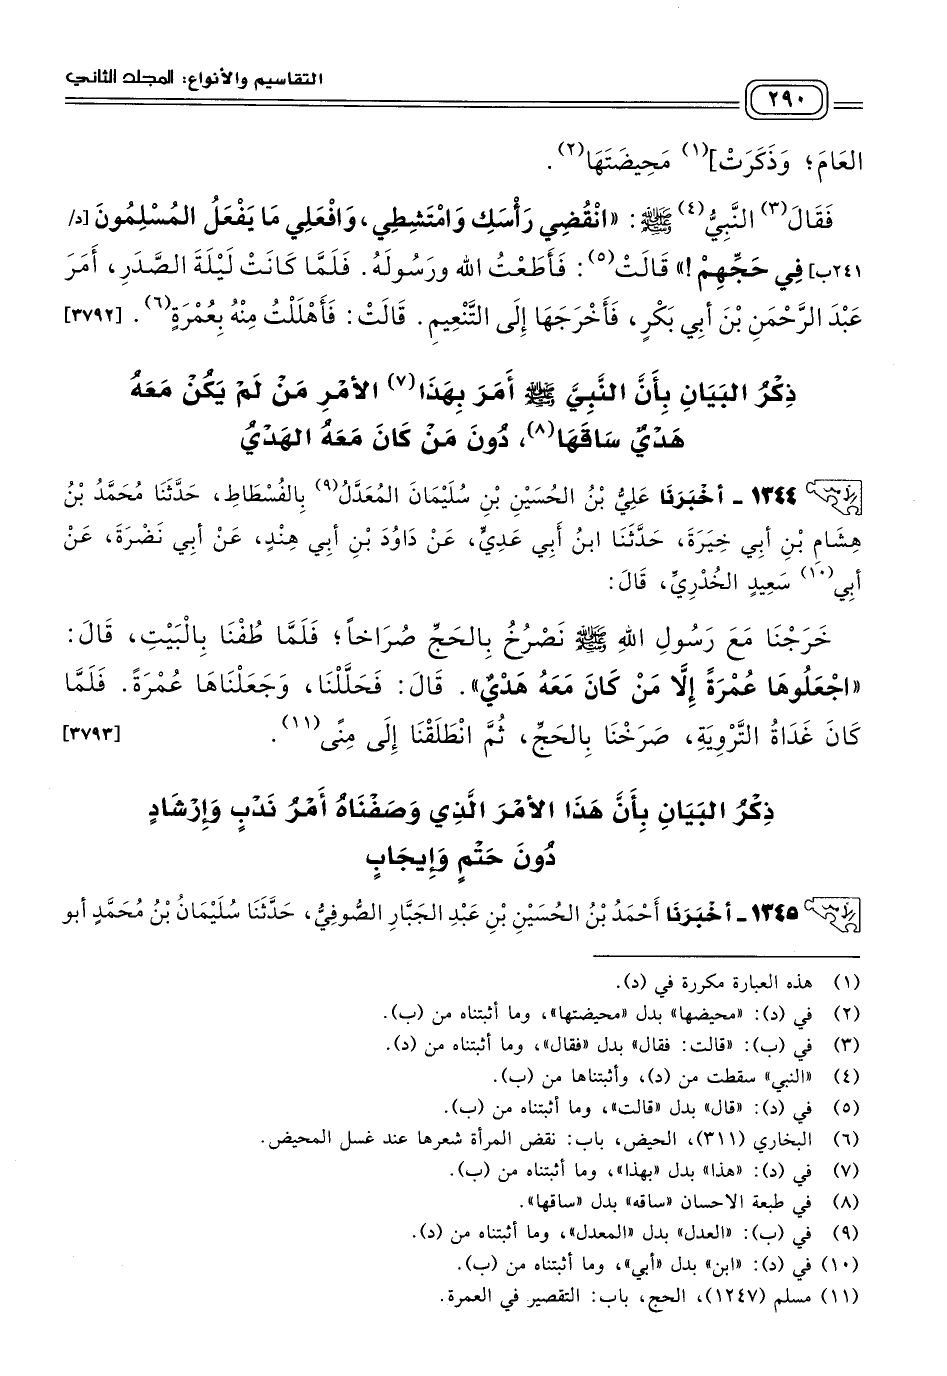 التقاسيم والأنواع: المجلد الثاني
٢٩٠
العَامَ؛ وَذَكَرَتْ](١) مَحِيضَتَهَا(٢).
فَقَالَ(٣) النَّبِيُّ(٤) ﷺ: «انْقُضِي رَأْسَكِ وَامْتَشِطِي، وَافْعَلِي مَا يَفْعَلُ المُسْلِمُونَ [د/
٢٤١ب] فِي حَجِّهِمْ!» قَالَتْ(٥): فَأَطَعْتُ الله ورَسُولَهُ. فَلَمَّا كَانَتْ لَيْلَةَ الصَّدَرِ، أَمَرَ
عَبْدَ الرَّحْمَنِ بْنَ أَبِي بَكْرٍ، فَأَخْرَجَهَا إِلَى التَّنْعِيمِ. قَالَتْ: فَأَهْلَلْتُ مِنْهُ بِعُمْرَةٍ(٦). [٣٧٩٢]
ذِكْرُ البَيَانِ بِأَنَّ النَّبِيَّ ﷺ أَمَرَ بِهَذَا(٧) الأَمْرِ مَنْ لَمْ يَكُنْ مَعَهُ
هَدْيٌ سَاقَهَا(٨)، دُونَ مَنْ كَانَ مَعَهُ الهَدْيُ
١٣٤٤ - أَخْبَرَنَا عَلِيُّ بْنُ الحُسَيْنِ بْنِ سُلَيْمَانَ المُعَدَّلُ(٩) بِالفُسْطَاطِ، حَدَّثَنَا مُحَمَّدُ بْنُ
هِشَامِ بْنِ أَبِي خِيَرَةَ، حَدَّثَنَا ابنُ أَبِي عَدِيٍّ، عَنْ دَاوُدَ بْنِ أَبِي هِنْدٍ، عَنْ أَبِي نَضْرَةَ، عَنْ
أَبِي(١٠) سَعِيدٍ الخُدْرِيِّ، قَالَ:
خَرَجْنَا مَعَ رَسُولِ اللهِ ﷺ نَصْرُخُ بِالحَجِّ صُرَاخاً؛ فَلَمَّا طُفْنَا بِالْبَيْتِ، قَالَ:
«اجْعَلُوهَا عُمْرَةً إِلَّا مَنْ كَانَ مَعَهُ هَدْيٌ». قَالَ: فَحَلَلْنَا، وَجَعَلْنَاهَا عُمْرَةً. فَلَمَّا
كَانَ غَدَاةُ التَّرْوِيَةِ، صَرَخْنَا بِالحَجِّ، ثُمَّ انْطَلَقْنَا إِلَى مِنًى(١١). [٣٧٩٣]
ذِكْرُ البَيَانِ بِأَنَّ هَذَا الأَمْرَ الَّذِي وَصَفْنَاهُ أَمْرُ نَدْبٍ وَإِرْشَادٍ
دُونَ حَتْمٍ وَإِيجَابٍ
١٣٤٥ - أَخْبَرَنَا أَحْمَدُ بْنُ الحُسَيْنِ بْنِ عَبْدِ الجَبَّارِ الصُّوفِيُّ، حَدَّثَنَا سُلَيْمَانُ بْنُ مُحَمَّدٍ أبو
(١) هذه العبارة مكررة في (د).
(٢) في (د): «محيضها» بدل «محيضتها»، وما أثبتناه من (ب).
(٣) في (ب): «قالت: فقال» بدل «فقال»، وما أثبتناه من (د).
(٤) «النبي» سقطت من (د)، وأثبتناها من (ب).
(٥) في (د): «قال» بدل «قالت»، وما أثبتناه من (ب).
(٦) البخاري (٣١١)، الحيض، باب: نقض المرأة شعرها عند غسل المحيض.
(٧) في (د): «هذا» بدل «بهذا»، وما أثبتناه من (ب).
(٨) في طبعة الاحسان «ساقه» بدل «ساقها».
(٩) في (ب): «العدل» بدل «المعدل»، وما أثبتناه من (د).
(١٠) في (د): «ابن» بدل «أبي»، وما أثبتناه من (ب).
(١١) مسلم (١٢٤٧)، الحج، باب: التقصير في العمرة.